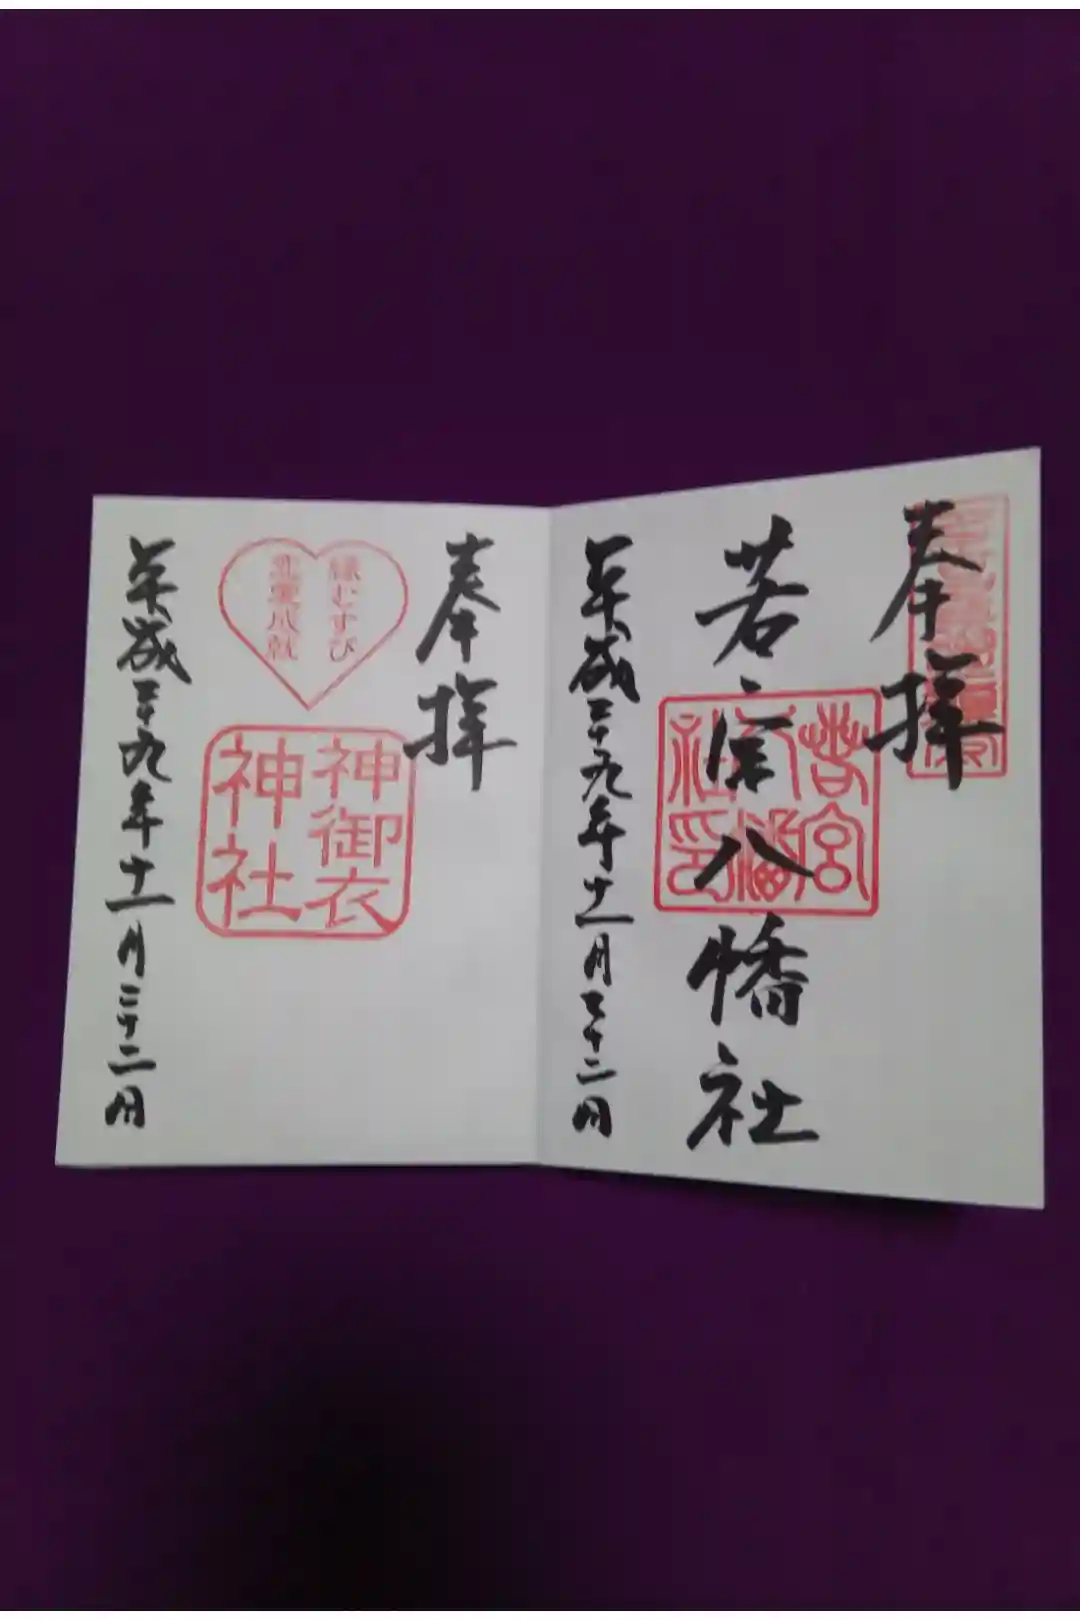 奉拝
若宮八幡社
若宮
八幡
社印
平成二十九年十一月二十二日
奉拝
縁むすび
恋愛成就
神御衣
神社
平成二十九年十一月二十二日